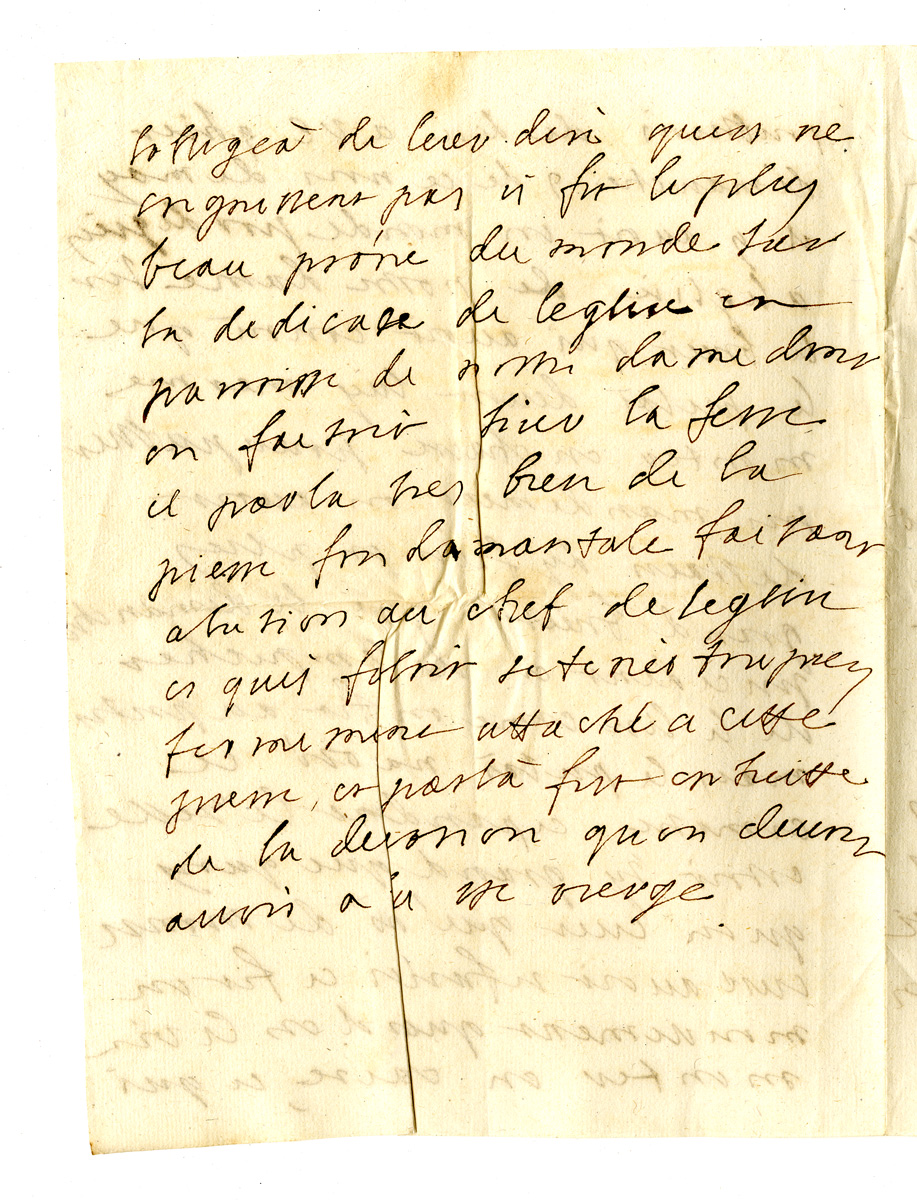 de leur dire quils ne
pas il fit le plus
beau prône du monde sur
la dedicase de leglise en
parroisse de notre dame dont
on faisoit hier la feste
il parla tres bien de la
pierre fondamantale faisant
alusion au chef de leglise
et quil faloit se tenir toujours
fermement attaché a cette
pierre, et parla fort ensuitte
de la devotion quon devoit
avoir a la ste vierge